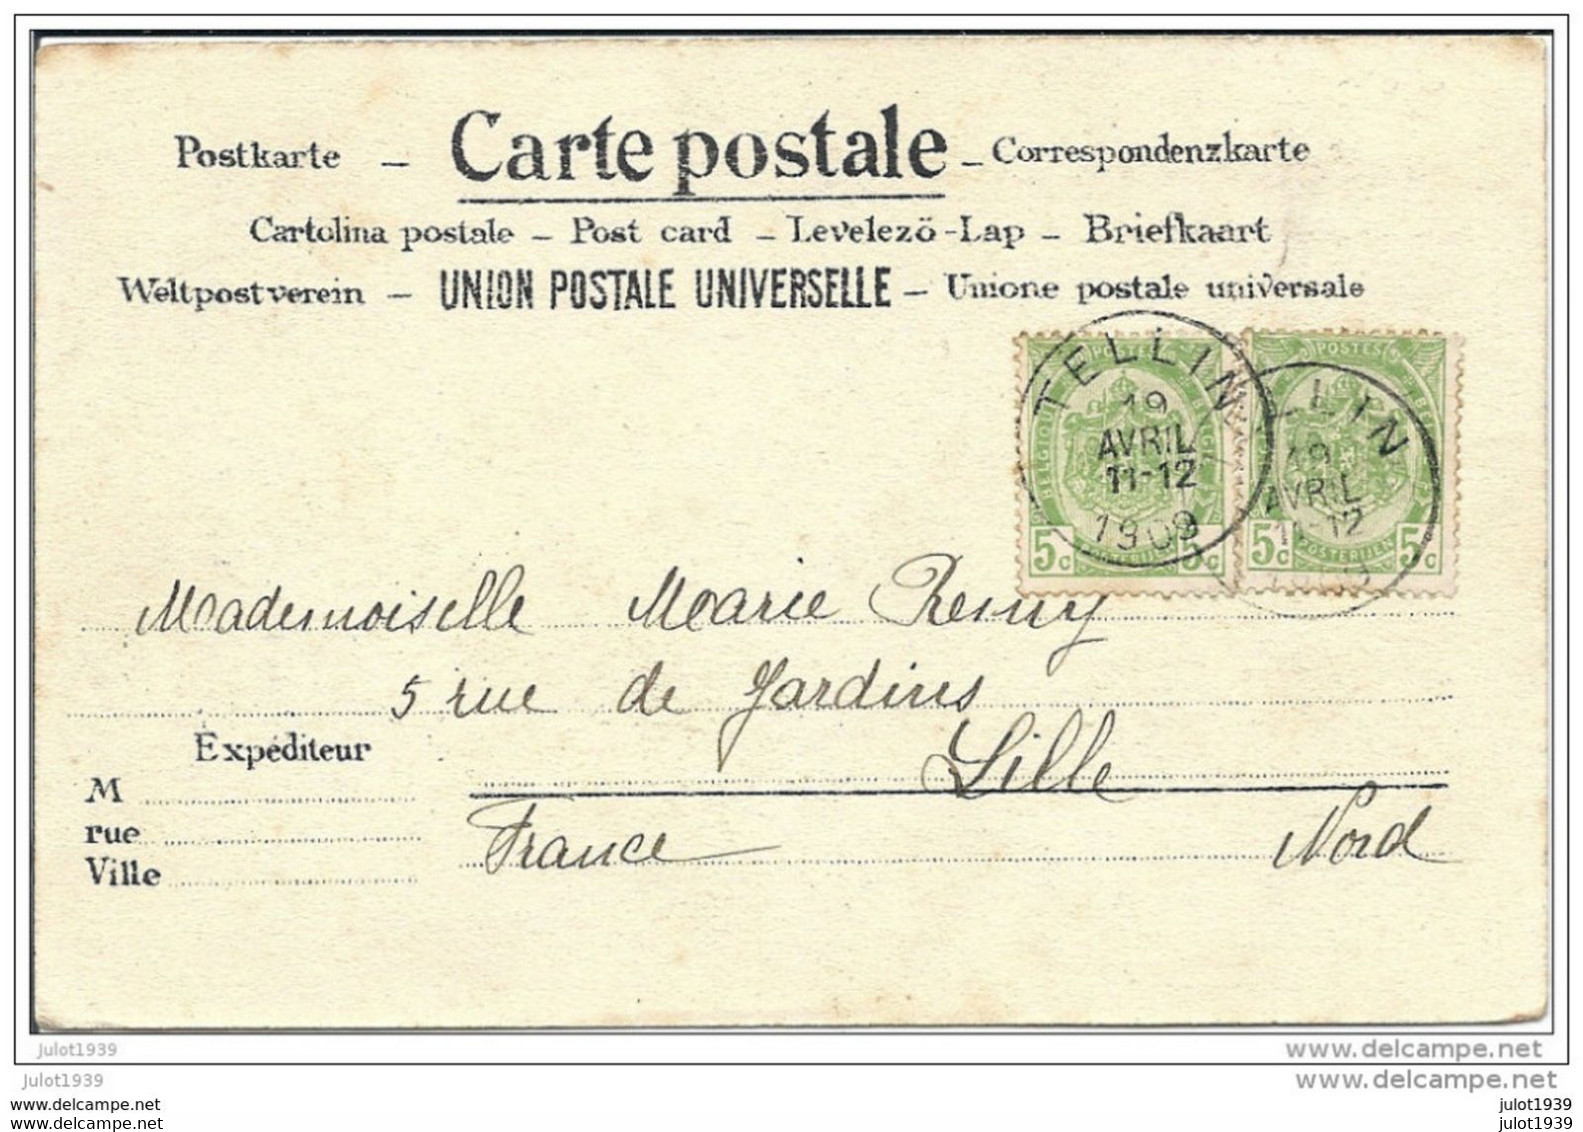 Postkarte – Carte postale – Correspondenzkarte
Cartolina postale – Post card – Levelezö-Lap – Briefkaart
Weltpostverein – UNION POSTALE UNIVERSELLE – Unione postale universale
TELLIN
19
AVRIL
11-12
1909
POSTES
BELGIQUE
5c 5c
POSTERIJEN
LLIN
19
AVRIL
12
POSTES
5c 5c
POSTERIJEN
Mademoiselle Marie Remy
5 rue de Jardins
Lille
France Nord
Expéditeur
M
rue
Ville
julot1939
www.delcampe.net
julot1939
www.delcampe.net
www.delcampe.net
julot1939
www.delcampe.net
julot1939